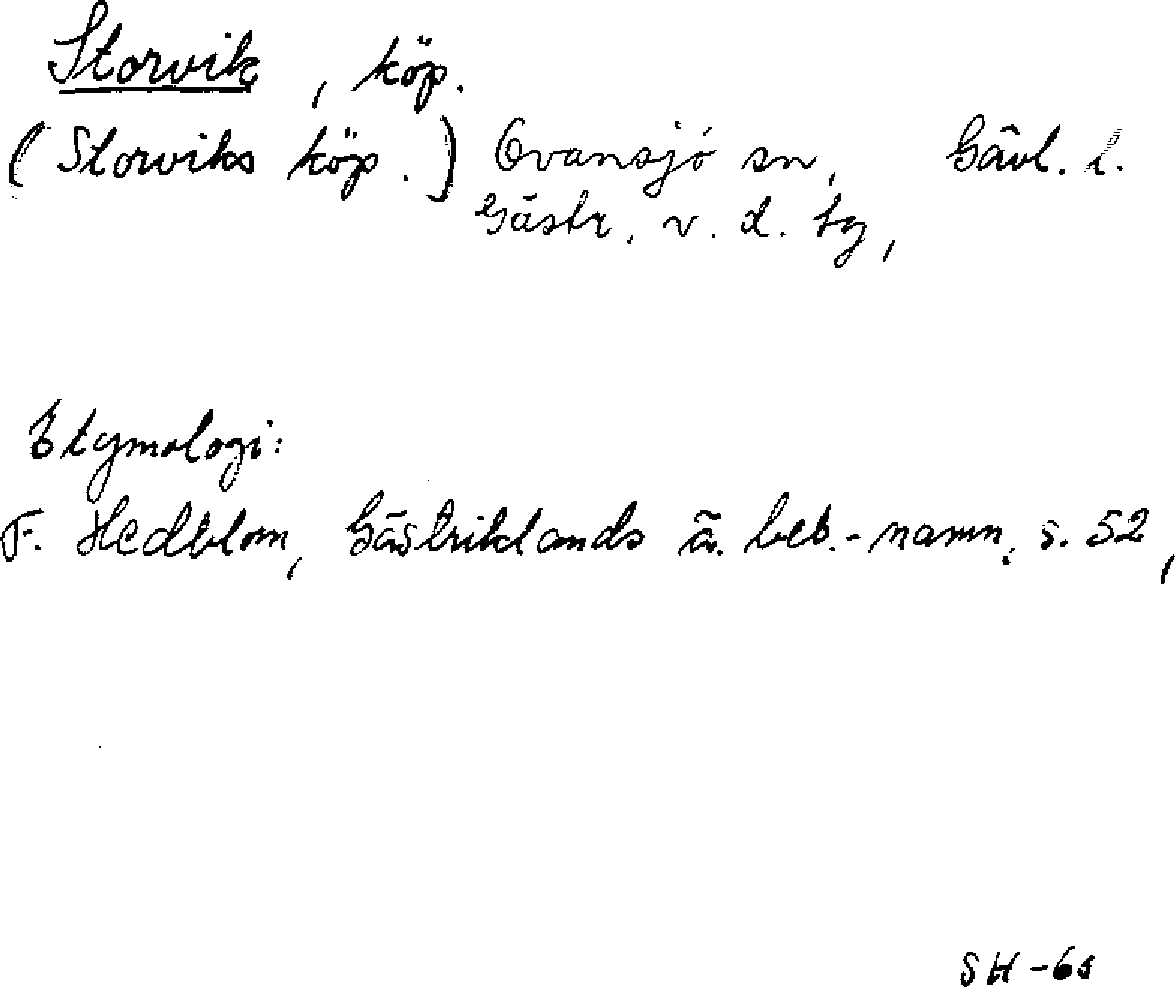 Storvik, köp.
(Storviks köp.) Ovansjö sn, Gävl. l.
Gästr. v. d. tg,
Etymologi:
F. Hedblom, Gästriklands ä. beb.-namn, s. 52,